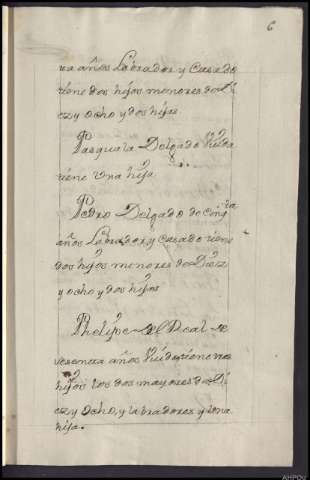 6
ra años Labrador y Casado
tiene dos hijos menores de Di
ez y ocho y dos hijas
Pasquala Delgado Viuda
tiene Una hija
Pedro Delgado de Cinq.ta
años Labrador y casado tiene
dos hijos menores de Diez
y ocho y dos hijas
Phelipe del Real de
sesenta años Viudo tiene tres
hijos los dos mayores de Di
ez y Ocho, y labradores y una
hija.
AHPOu